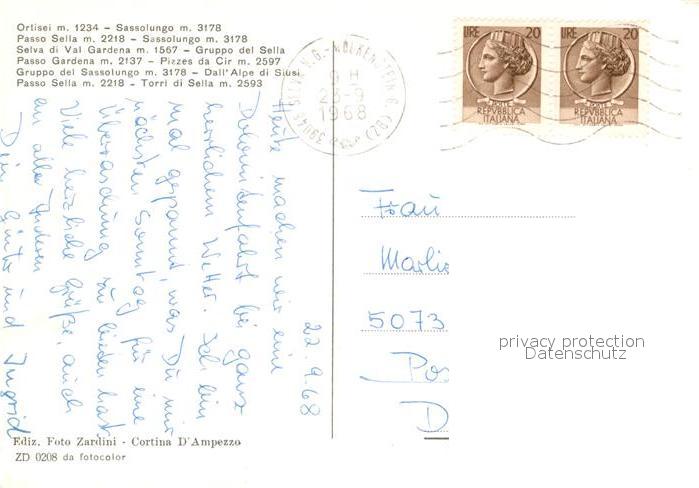 Ortisei m. 1234 - Sassolungo m. 3178
Passo Sella m. 2218 - Sassolungo m. 3178
Selva di Val Gardena m. 1567 - Gruppo del Sella
Passo Gardena m. 2137 - Pizzes da Cir m. 2597
Gruppo del Sassolungo m. 3178 - Dall'Alpe di Siusi
Passo Sella m. 2218 - Torri di Sella m. 2593
LIRE 20
REPVBBLICA
ITALIANA
LIRE 20
REPVBBLICA
ITALIANA
39048 SELVA V.G. - WOLKENSTEIN G. (BZ)
9 H
23-9
1968
22.9.68
Heute machen wir eine
Dolomitenfahrt bei ganz
herrlichem Wetter. Ich bin
mal gespannt, was Du mir
nächsten Sonntag für eine
Überraschung zu bieten hast.
Viele herzliche Grüße, auch
an alle Anderen
Dein Günter und Ingrid
Frau
Marli
5073
Po
D
privacy protection
Datenschutz
Ediz. Foto Zardini - Cortina D'Ampezzo
ZD 0208 da fotocolor